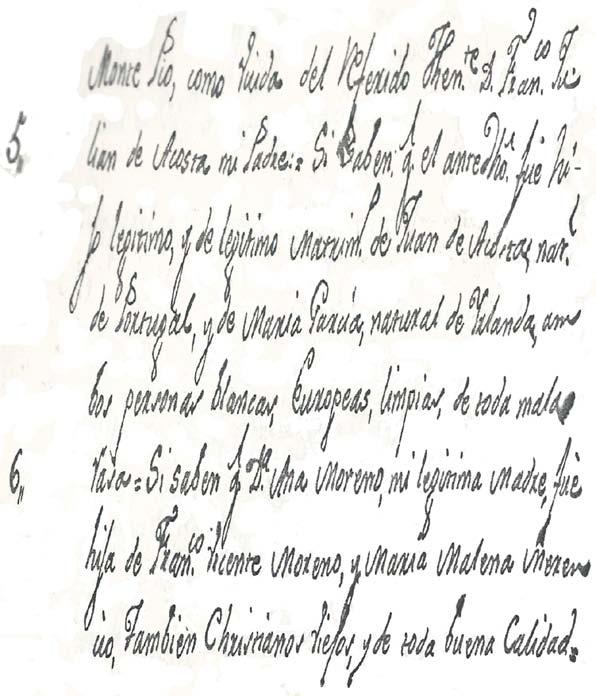 Monte Pio, como Viuda del Referido Then.te D. Fran.co Ju
5,, lian de Acosta mi Padre = Si Saben q.e el antedho. fue hi-
jo legitimo, y de legitimo Matrim.o de Juan de Acosta, nat.l
de Portugal, y de Maria Garcia, natural de Yrlanda, am
bos personas blancas, Europeas, limpias, de toda mala
6,, rasa = Si saben q.e D.a Ana Moreno, mi legitima Madre, fue
hija de Fran.co Vicente Moreno, y Maria Malena Meren
cio, Tambien Christianos viejos, y de toda buena Calidad =